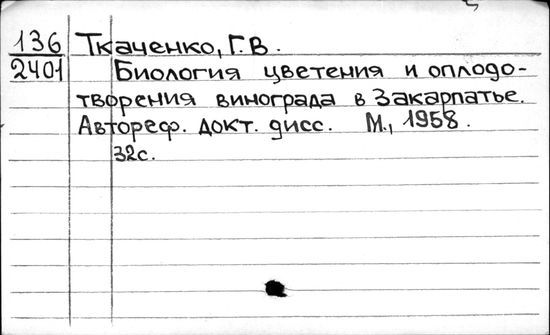 136 Ткаченко, Г.В.
2401 Биология цветения и оплодо-
творения винограда в Закарпатье.
Автореф. докт. дисс. М., 1958.
32с.